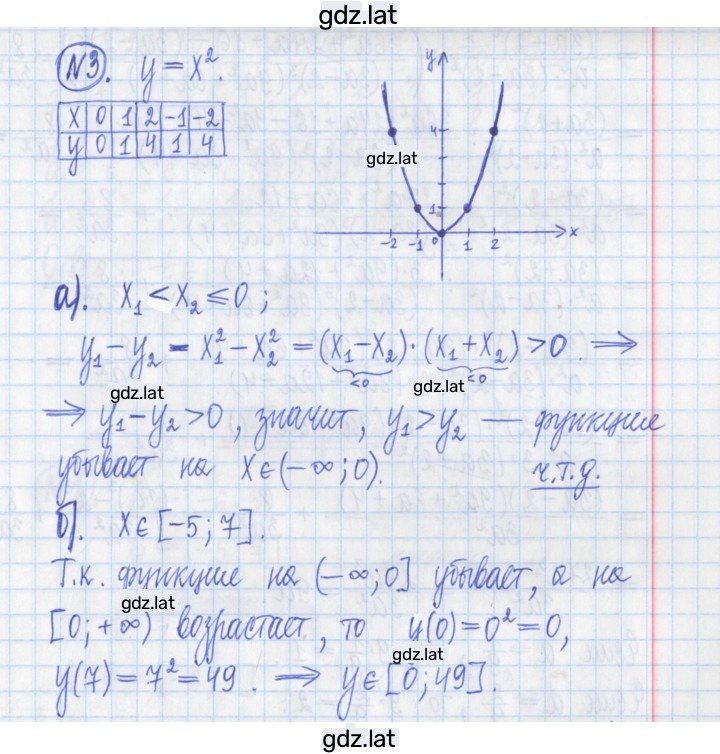 gdz.lat
№3. y = x².
x 0 1 2 -1 -2
y 0 1 4 1 4
y
4
gdz.lat
1
-2 -1 0 1 2 x
а). x₁ < x₂ ≤ 0 ;
y₁ - y₂ = x₁² - x₂² = (x₁ - x₂) · (x₁ + x₂) > 0 . ⟹
<0 <0
gdz.lat gdz.lat
⟹ y₁ - y₂ > 0 , значит, y₁ > y₂ — функция
убывает на x ∈ (-∞; 0). ч.т.д.
б). x ∈ [-5; 7].
Т.к. функция на (-∞; 0] убывает, а на
gdz.lat
[0; +∞) возрастает, то y(0) = 0² = 0,
gdz.lat
y(7) = 7² = 49 . ⟹ y ∈ [0; 49].
gdz.lat